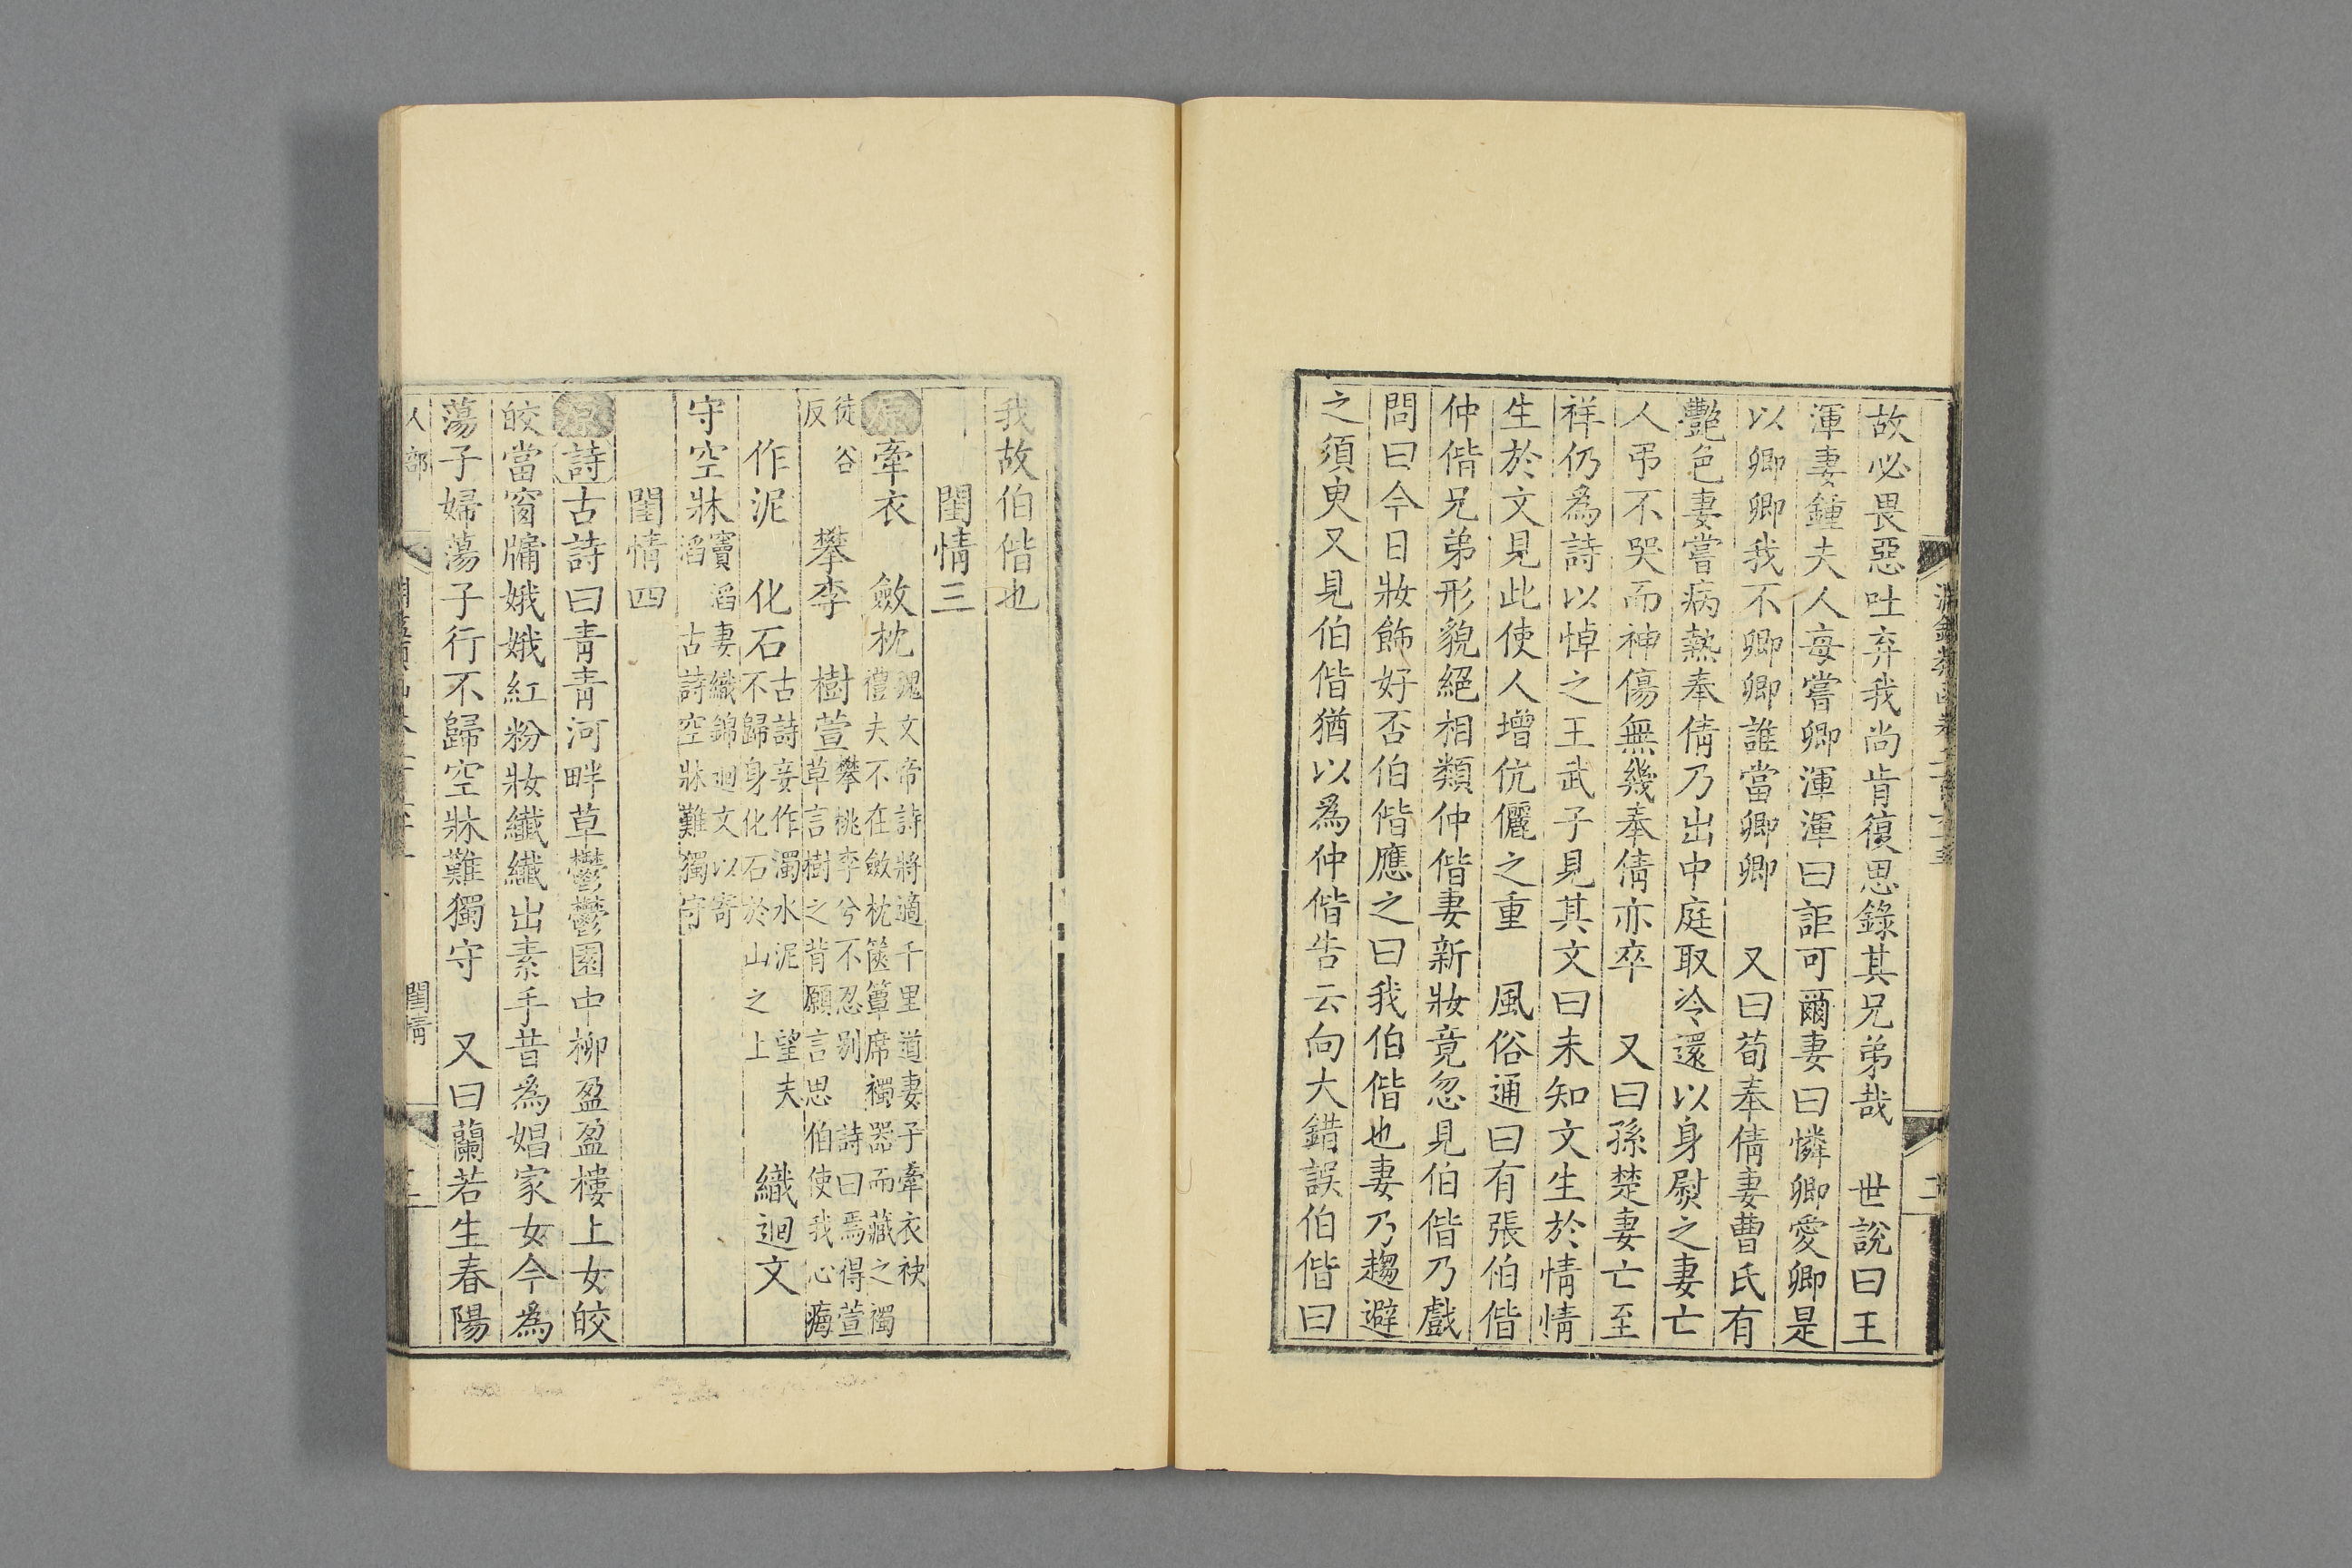 故必畏惡吐弃我尚肯復思錄其兄弟哉　世說曰王
渾妻鍾夫人每嘗卿渾渾曰詎可爾妻曰憐卿愛卿是
以卿卿我不卿卿誰當卿卿　又曰荀奉倩妻曹氏有
艷色妻嘗病熱奉倩乃出中庭取冷還以身熨之妻亡
人弔不哭而神傷無幾奉倩亦卒　又曰孫楚妻亡至
祥仍爲詩以悼之王武子見其文曰未知文生於情情
生於文見此使人增伉儷之重　風俗通曰有張伯偕
仲偕兄弟形貌絕相類仲偕妻新妝竟忽見伯偕乃戲
問曰今日妝飾好否伯偕應之曰我伯偕也妻乃趨避
之須臾又見伯偕猶以爲仲偕告云向大錯誤伯偕曰
我故伯偕也
閨情三
原牽衣　斂枕魏文帝詩將適千里道妻子牽衣袂
禮夫不在斂枕篋簟席襡器而藏之襡
徒谷
反　攀李　樹萱攀桃李兮不忍别　詩曰焉得萱
草言樹之背願言思伯使我心痗
作泥　化石古詩妾作濁水泥　望夫
不歸身化石於山之上　織迴文
守空牀竇滔妻織錦迴文以寄
滔　古詩空牀難獨守
閨情四
原詩古詩曰青青河畔草鬱鬱園中柳盈盈樓上女皎
皎當窗牖娥娥紅粉妝纖纖出素手昔為娼家女今為
蕩子婦蕩子行不歸空牀難獨守　又曰蘭若生春陽
人部
閨情